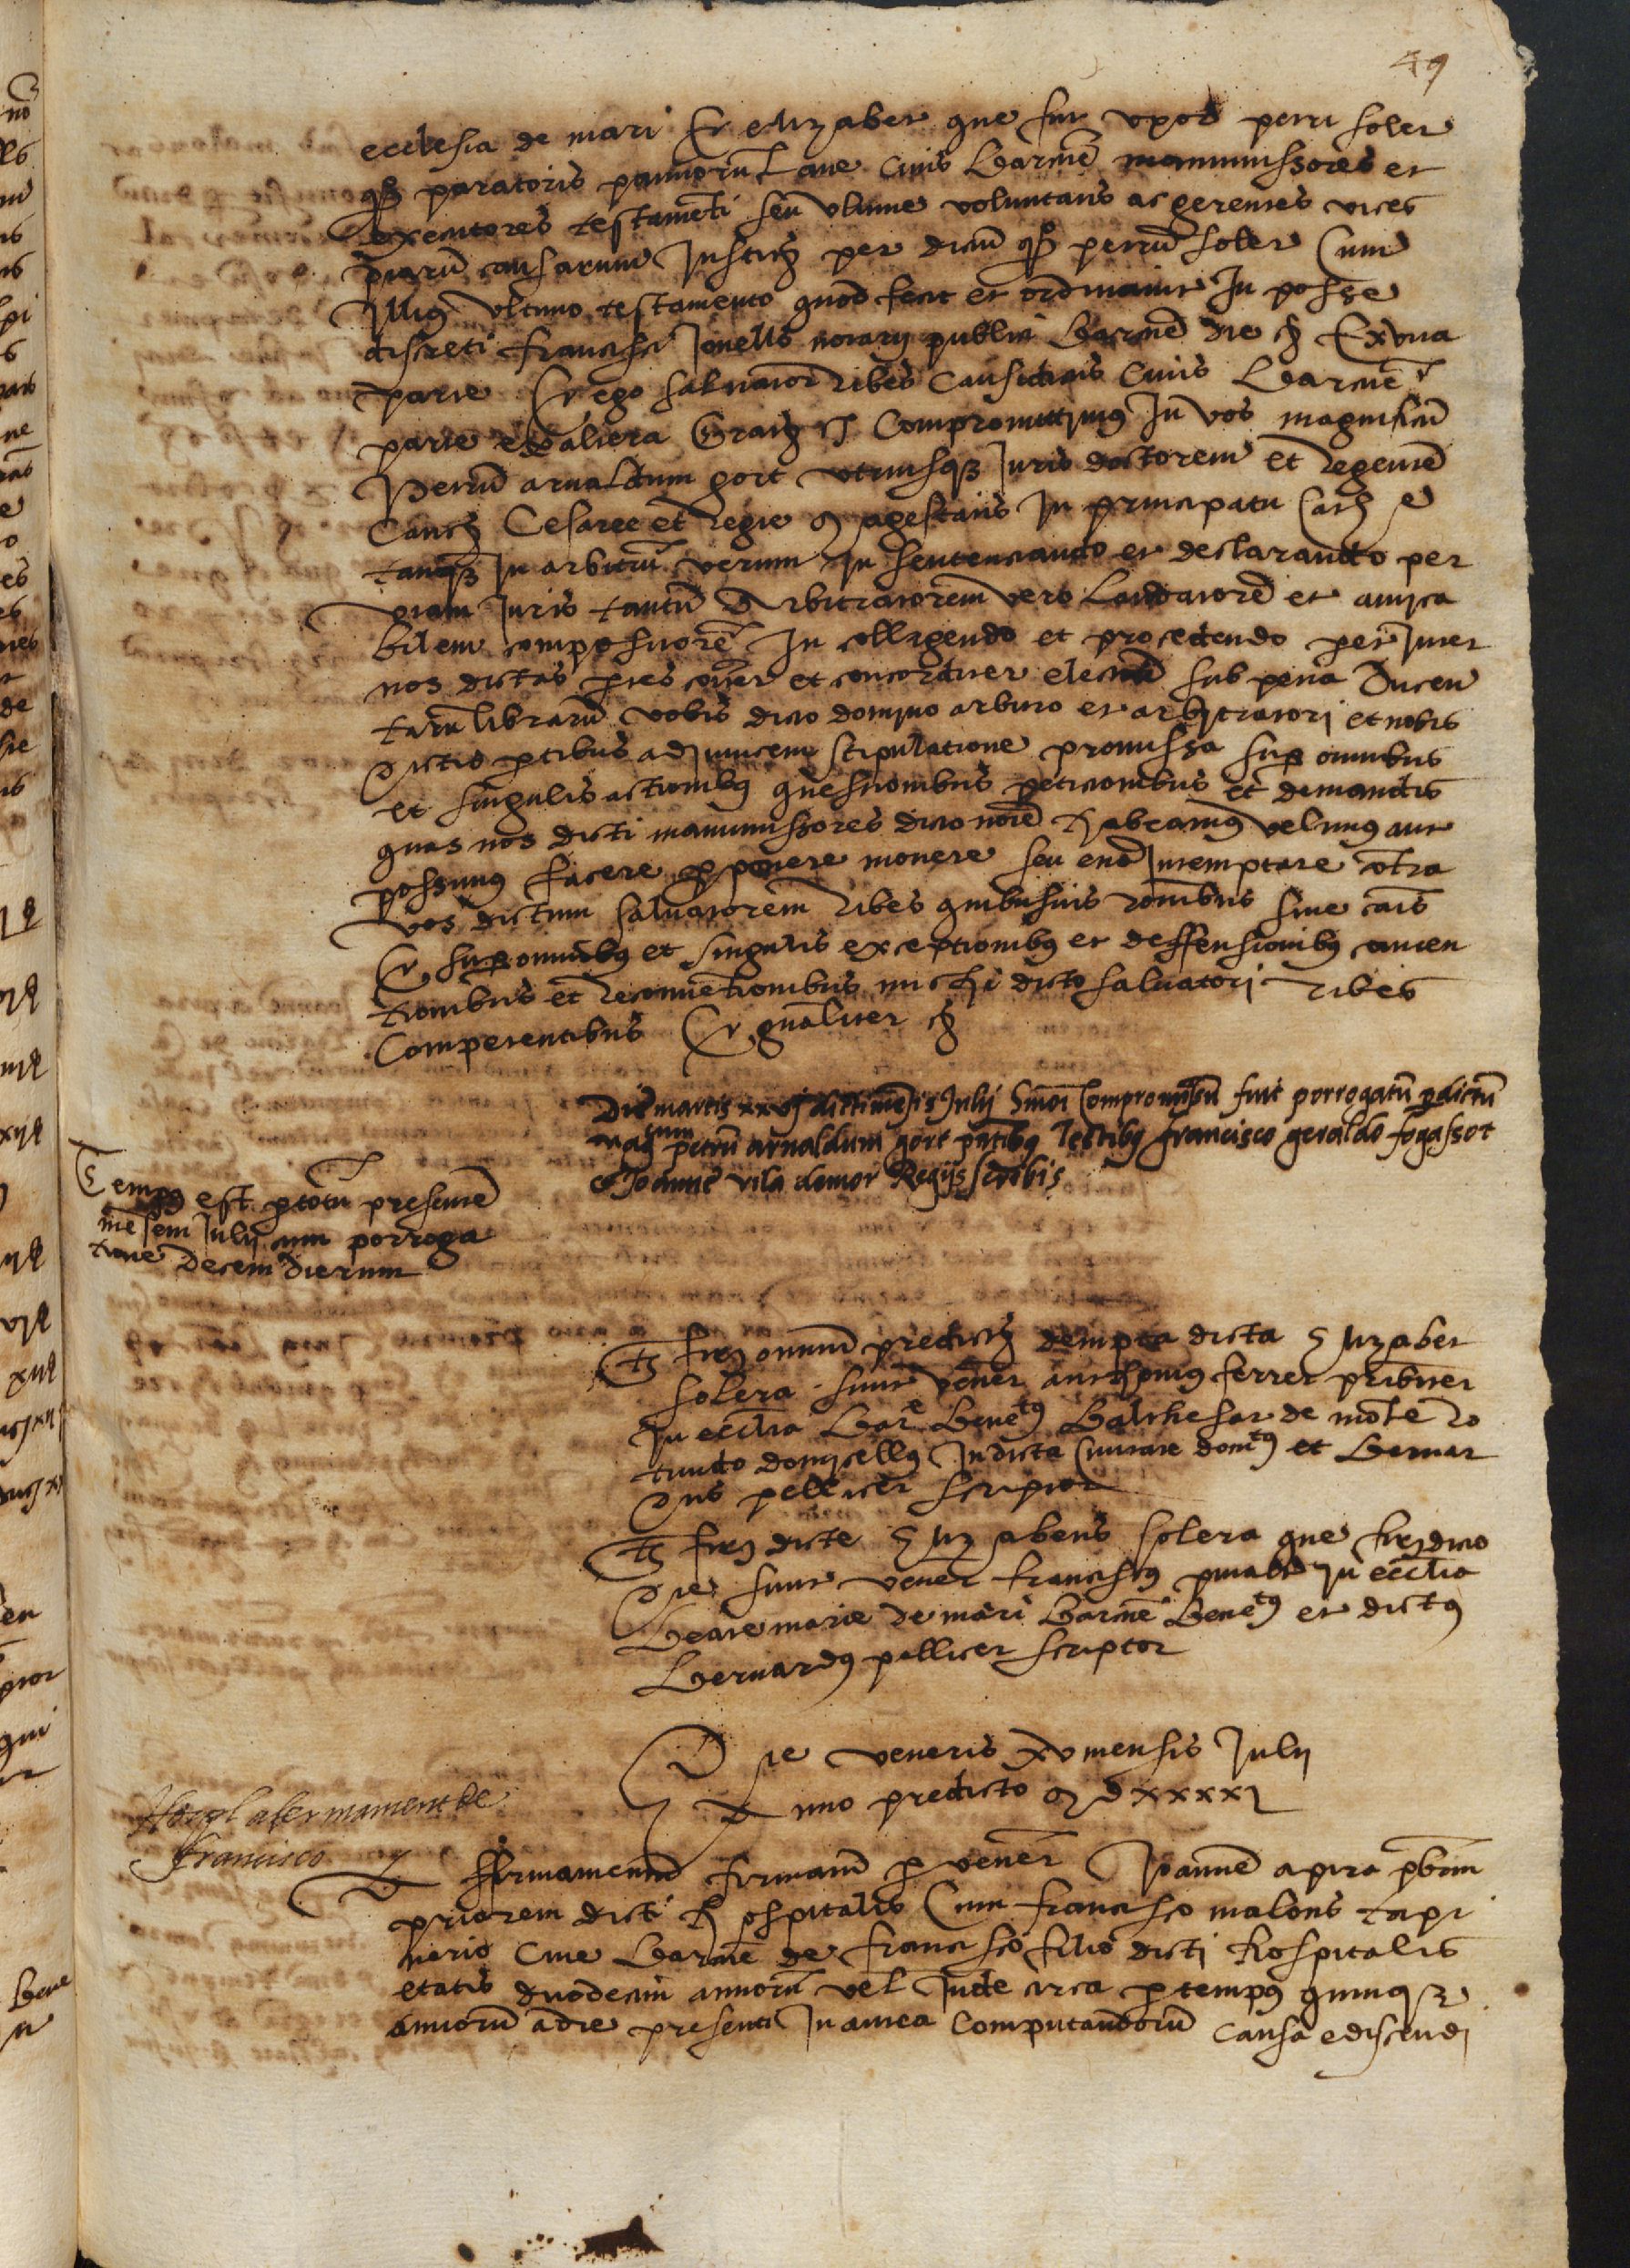 49
ecclesia de mari Et elizabet que fui uxor petri soler
qº paratoris pannorum Lane Civis Barcinõe manumissores et
executores testamenti seu ultime voluntatis ac gerentes vices
piarum causarum Instituti per dictum qº petrum soler Cum
Illius ultimo testamento quod fecit et ordinavit In posse
discreti francisci Jonells notarij publici Barcinõe die etc Ex una
parte Et ego salvator Ribes Causidicus Civis Barcinõe
parte ex altera Gratis etc Compromittimus In vos magnificum
Petrum arnaldum gort utriusque Juris doctorem et Regentem
Cancell Cesaree et Regie Magestatis In principatu Cath e
tanquam In arbitrum verum In sentenciando et declarando per
viam Juris tantum Arbitratorem vero Laudatorem et amica
bilem compositorem In colligendo et procedendo per Inter
nos dictas partes comuniter et concorditer electum sub pena Ducen
tarum librarum vobis dicto domino arbitro et arbitratori et nobis
Dictis partibus adjnvicem stipulatione promissa super omnibus
et singulis actionibus questionibus peticionibus et demandis
quas nos dicti manumissores dicto nomine habeamus velimus aut
possimus facere proponere movere seu etiam Intemptare contra
vos dictum salvatorem Ribes quibusvis rationibus sive causis
Et super omnibus et singulis exceptionibus et deffensionibus conven
tionibus et Reconventionibus michi dicto salvatori Ribes
Competentibus Et generaliter etc
Die martis xxvj dicti mensis Julij dictum Compromissum fuit porrogatum per dictum
magcum petrum arnaldum gort partibus Testibus francisco geraldo fogassot
et Joanne vila Regijs scribis
Tempus est per totum presentem
mesem Julij cum porroga
tione Decem Dierum
Testes firmarum omnium predictorum dempta dicta Elizabet
solera sunt vener anthonius ferrer presbiter
In ecclesia Bare Benetus Balthesar de monte Ro
tundo domicellus In dicta Civitate domtus et Bernar
Dus pellicer scriptor
Testes firme dicte Elizabetis solera que firmavit dicto
Die sunt vener franciscus In ecclesia
Beate marie de mari Barcinõe Benetus et dictus
Bernardus pellicer scriptor
Die veneris xv mensis Julij
Anno predicto M D xxxxj
Hospl afermament de
francisco
Affirmamentum firmatum per vener Joannem apira presbiterum
priorem dicti Hospitalis Cum francisco malons tapi
nerio Cive Barcinõe de francisco filio dicti Hospitalis
etatis duodecim annorum vel Inde circa per tempus quinque
annorum a die presenti In antea Computandorum Causa ediscendj